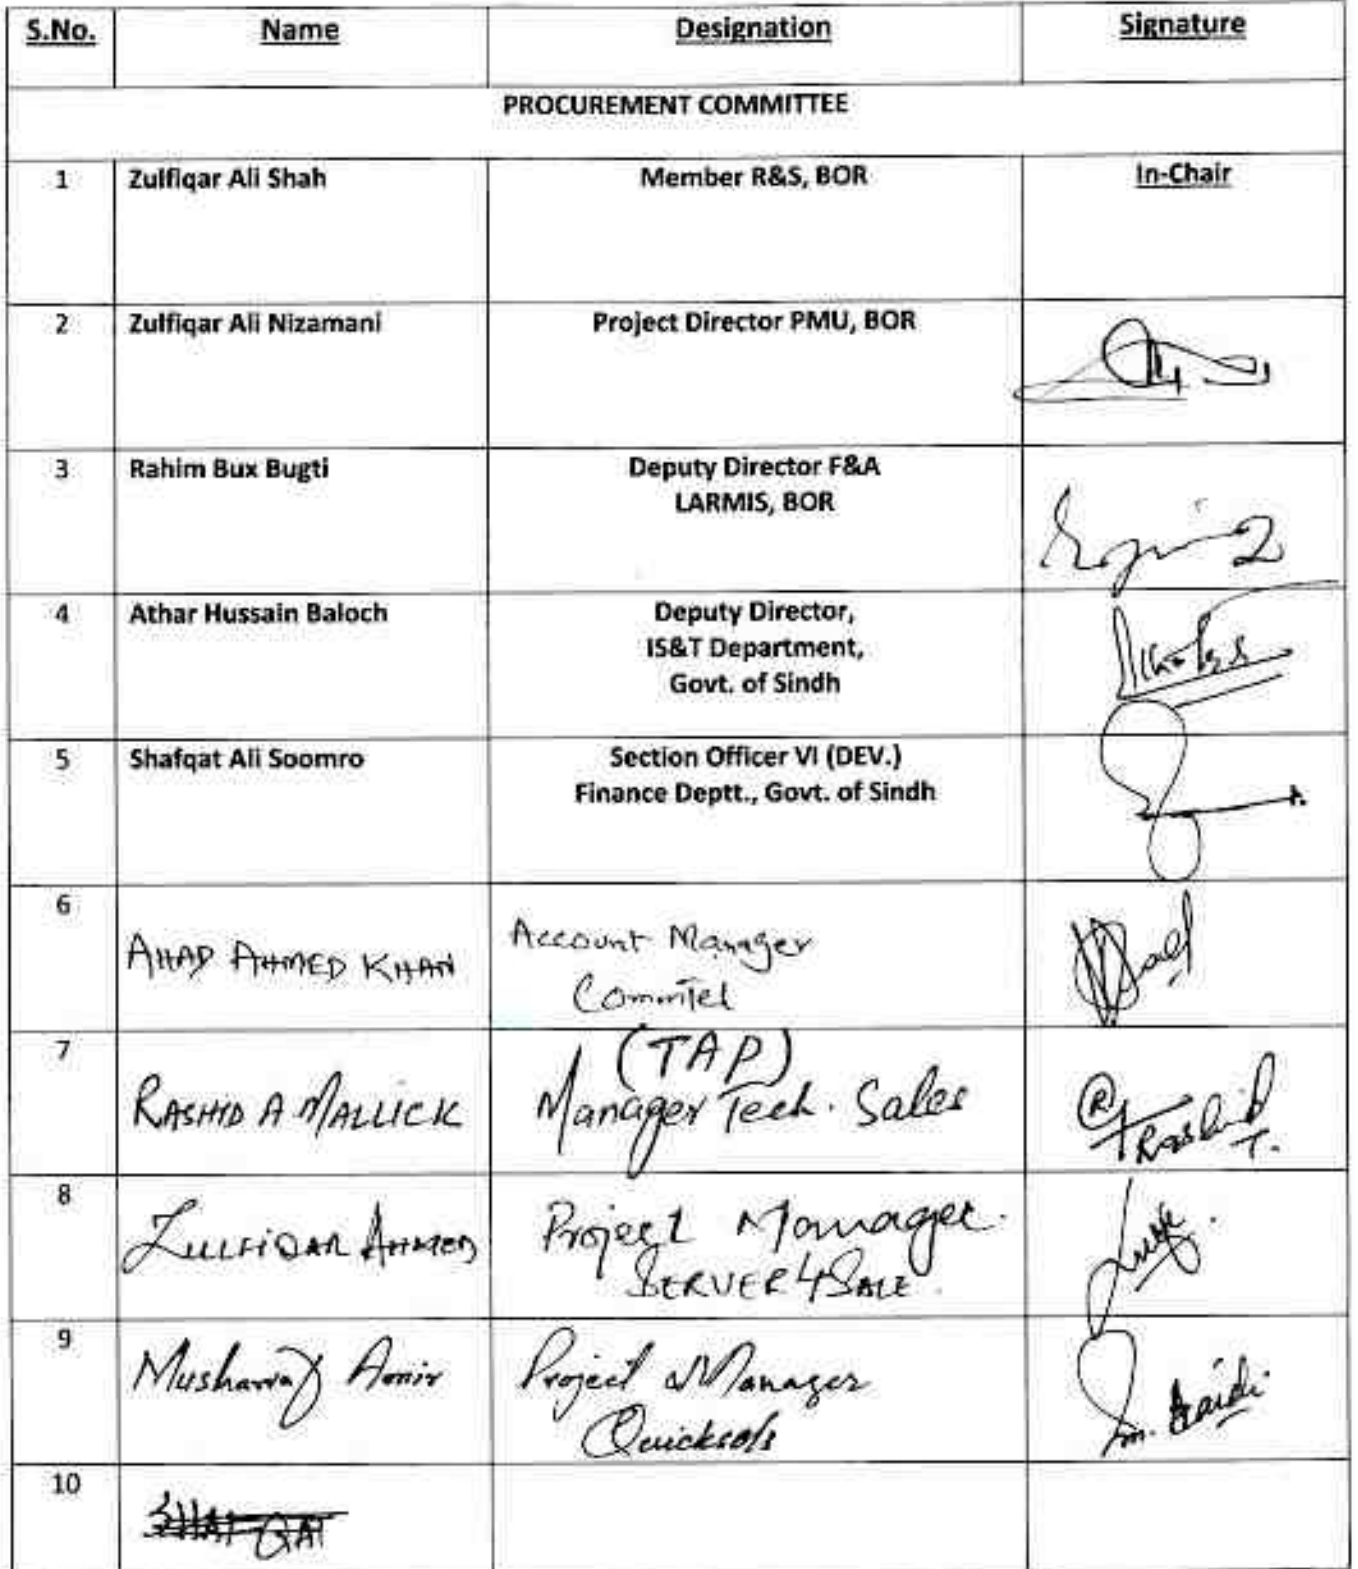 S.No. Name Designation Signature
PROCUREMENT COMMITTEE
1 Zulfiqar Ali Shah Member R&S, BOR In-Chair
2 Zulfiqar Ali Nizamani Project Director PMU, BOR
3 Rahim Bux Bugti Deputy Director F&A
LARMIS, BOR
4 Athar Hussain Baloch Deputy Director,
IS&T Department,
Govt. of Sindh
5 Shafqat Ali Soomro Section Officer VI (DEV.)
Finance Deptt., Govt. of Sindh
6
AHAD AHMED KHAN Account Manager
Commtel
7 (TAP)
RASHID A MALLICK Manager Tech. Sales Rashid
8
ZULFIQAR AHMED Project Manager
SERVER4SALE.
9
Musharraf Amir Project Manager
Quicksols
10
SHAFQAT